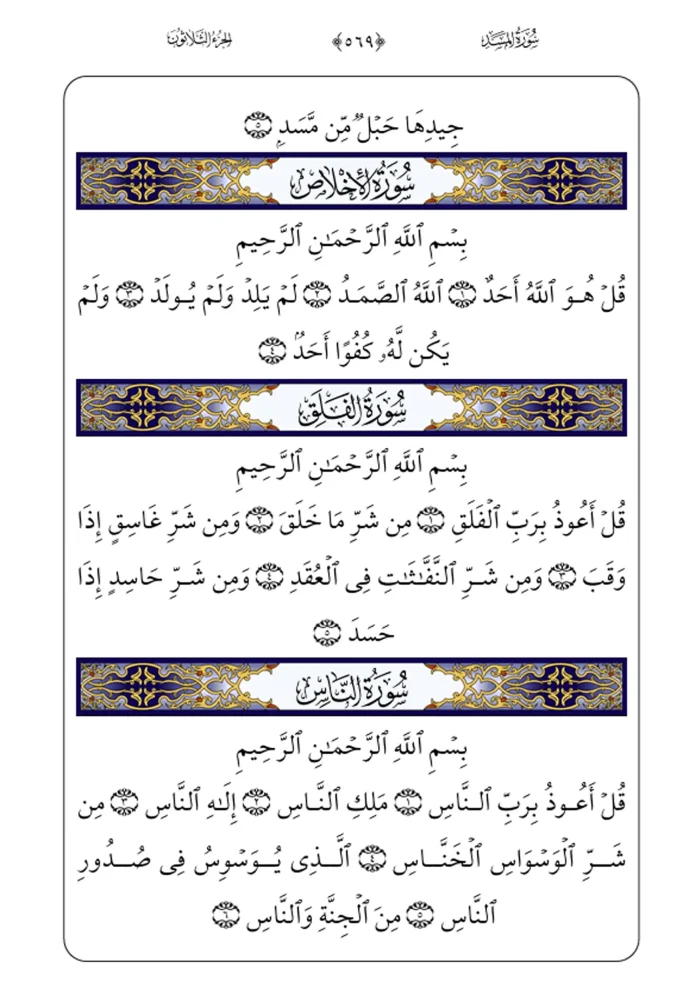 سُورَةُ المَسَد ﴿٥٦٩﴾ الجُزءُ الثَّلَاثُونَ
جِيدِهَا حَبۡلٞ مِّن مَّسَدِۭ ٥
سُورَةُ الإِخْلَاصِ
بِسۡمِ ٱللَّهِ ٱلرَّحۡمَٰنِ ٱلرَّحِيمِ
قُلۡ هُوَ ٱللَّهُ أَحَدٌ ١ ٱللَّهُ ٱلصَّمَدُ ٢ لَمۡ يَلِدۡ وَلَمۡ يُولَدۡ ٣ وَلَمۡ
يَكُن لَّهُۥ كُفُوًا أَحَدُۢ ٤
سُورَةُ الفَلَقِ
بِسۡمِ ٱللَّهِ ٱلرَّحۡمَٰنِ ٱلرَّحِيمِ
قُلۡ أَعُوذُ بِرَبِّ ٱلۡفَلَقِ ١ مِن شَرِّ مَا خَلَقَ ٢ وَمِن شَرِّ غَاسِقٍ إِذَا
وَقَبَ ٣ وَمِن شَرِّ ٱلنَّفَّٰثَٰتِ فِى ٱلۡعُقَدِ ٤ وَمِن شَرِّ حَاسِدٍ إِذَا
حَسَدَ ٥
سُورَةُ النَّاسِ
بِسۡمِ ٱللَّهِ ٱلرَّحۡمَٰنِ ٱلرَّحِيمِ
قُلۡ أَعُوذُ بِرَبِّ ٱلنَّاسِ ١ مَلِكِ ٱلنَّاسِ ٢ إِلَٰهِ ٱلنَّاسِ ٣ مِن
شَرِّ ٱلۡوَسۡوَاسِ ٱلۡخَنَّاسِ ٤ ٱلَّذِى يُوَسۡوِسُ فِى صُدُورِ
ٱلنَّاسِ ٥ مِنَ ٱلۡجِنَّةِ وَٱلنَّاسِ ٦